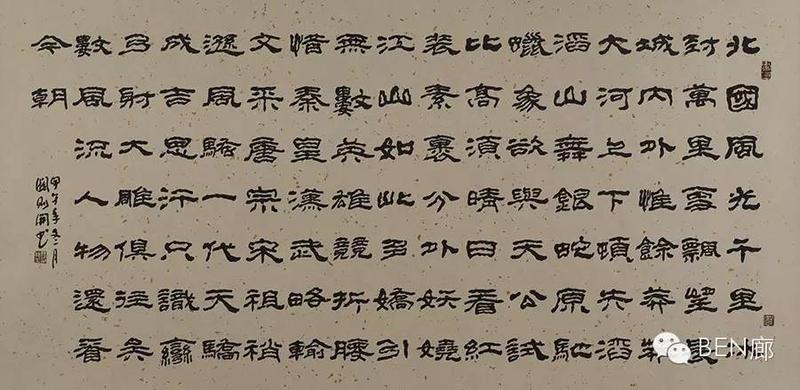 北國風光千里冰
封萬里雪飄望長
城內外惟餘莽莽
大河上下頓失滔
滔山舞銀蛇原馳
蠟象欲與天公試
比高須晴日看紅
裝素裹分外妖嬈
江山如此多嬌引
無數英雄競折腰
惜秦皇漢武略輸
文采唐宗宋祖稍
遜風騷一代天驕
成吉思汗只識彎
弓射大雕俱往矣
數風流人物還看
今朝
甲午年冬二月
BEN廊